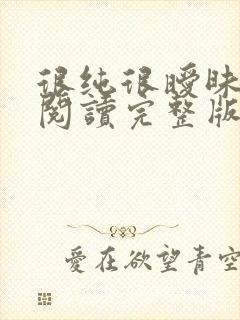 很纯很曖昧
閱讀完整版
愛在欲望青空